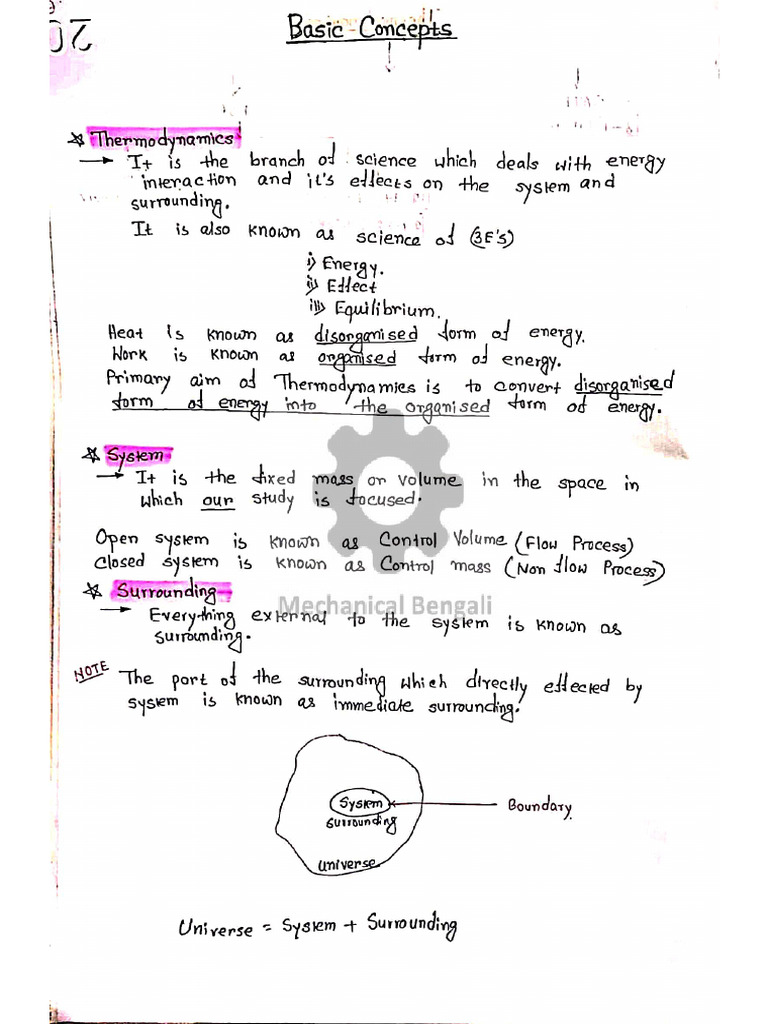 Basic Concepts
☆ Thermodynamics
→ It is the branch of science which deals with energy
interaction and it's effects on the system and
surrounding.
It is also known as science of (3E's)
i) Energy.
ii) Effect
iii) Equilibrium.
Heat is known as disorganised form of energy.
Work is known as organised form of energy.
Primary aim of Thermodynamics is to convert disorganised
form of energy into the organised form of energy.
☆ System
→ It is the fixed mass or volume in the space in
which our study is focused.
Open system is known as Control Volume (Flow Process)
Closed system is known as Control mass (Non flow Process)
☆ Surrounding
Mechanical Bengali
→ Everything external to the system is known as
surrounding.
NOTE The port of the surrounding which directly effected by
system is known as immediate surrounding.
System
Boundary
surrounding
universe
Universe = System + Surrounding